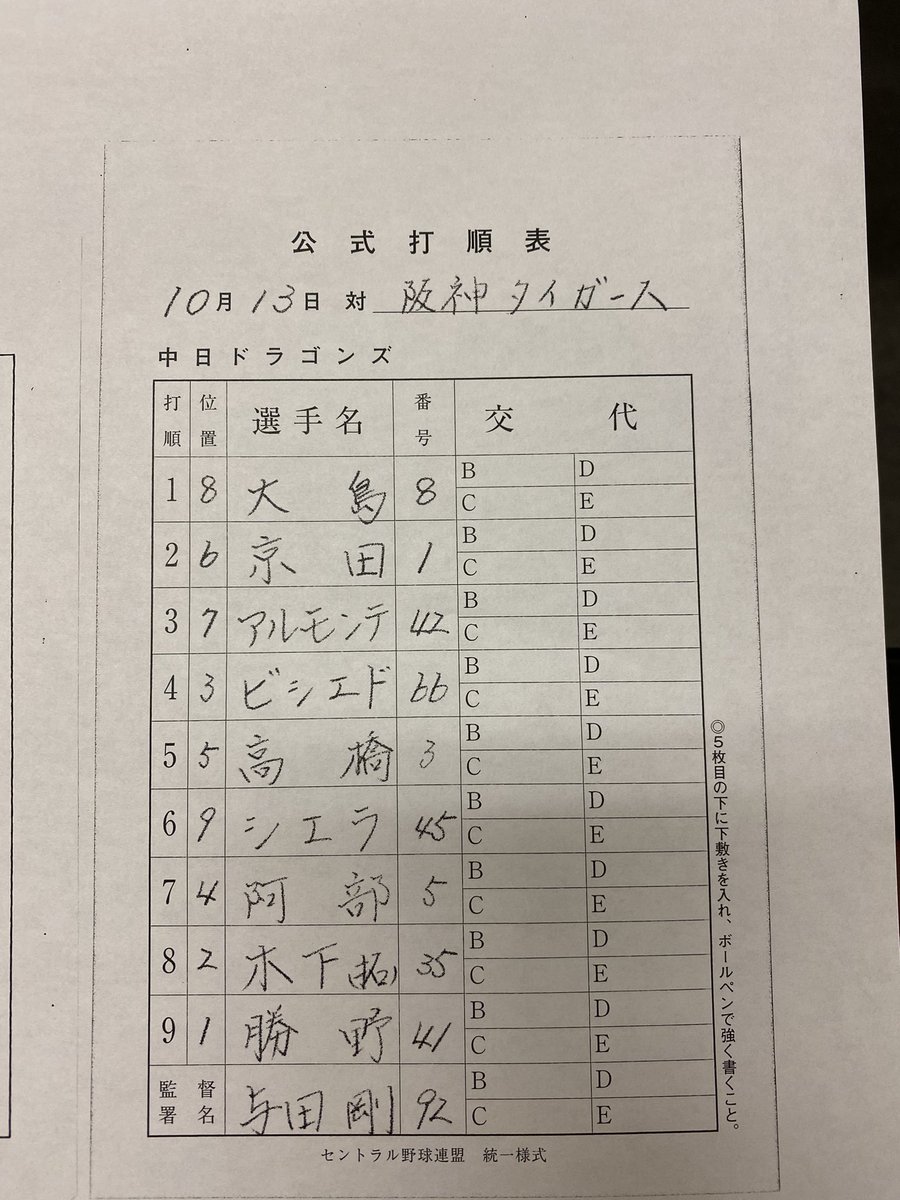 公式打順表
10月13日 対 阪神タイガース
中日ドラゴンズ
打順 位置 選手名 番号 交代
1 8 大島 8 B D
C E
2 6 京田 1 B D
C E
3 7 アルモンテ 42 B D
C E
4 3 ビシエド 66 B D
C E
5 5 高橋 3 B D
C E
6 9 シエラ 45 B D
C E
7 4 阿部 5 B D
C E
8 2 木下(拓) 35 B D
C E
9 1 勝野 41 B D
C E
監督署名 与田剛 92 B D
C E
セントラル野球連盟 統一様式
◎5枚目の下に下敷きを入れ、ボールペンで強く書くこと。